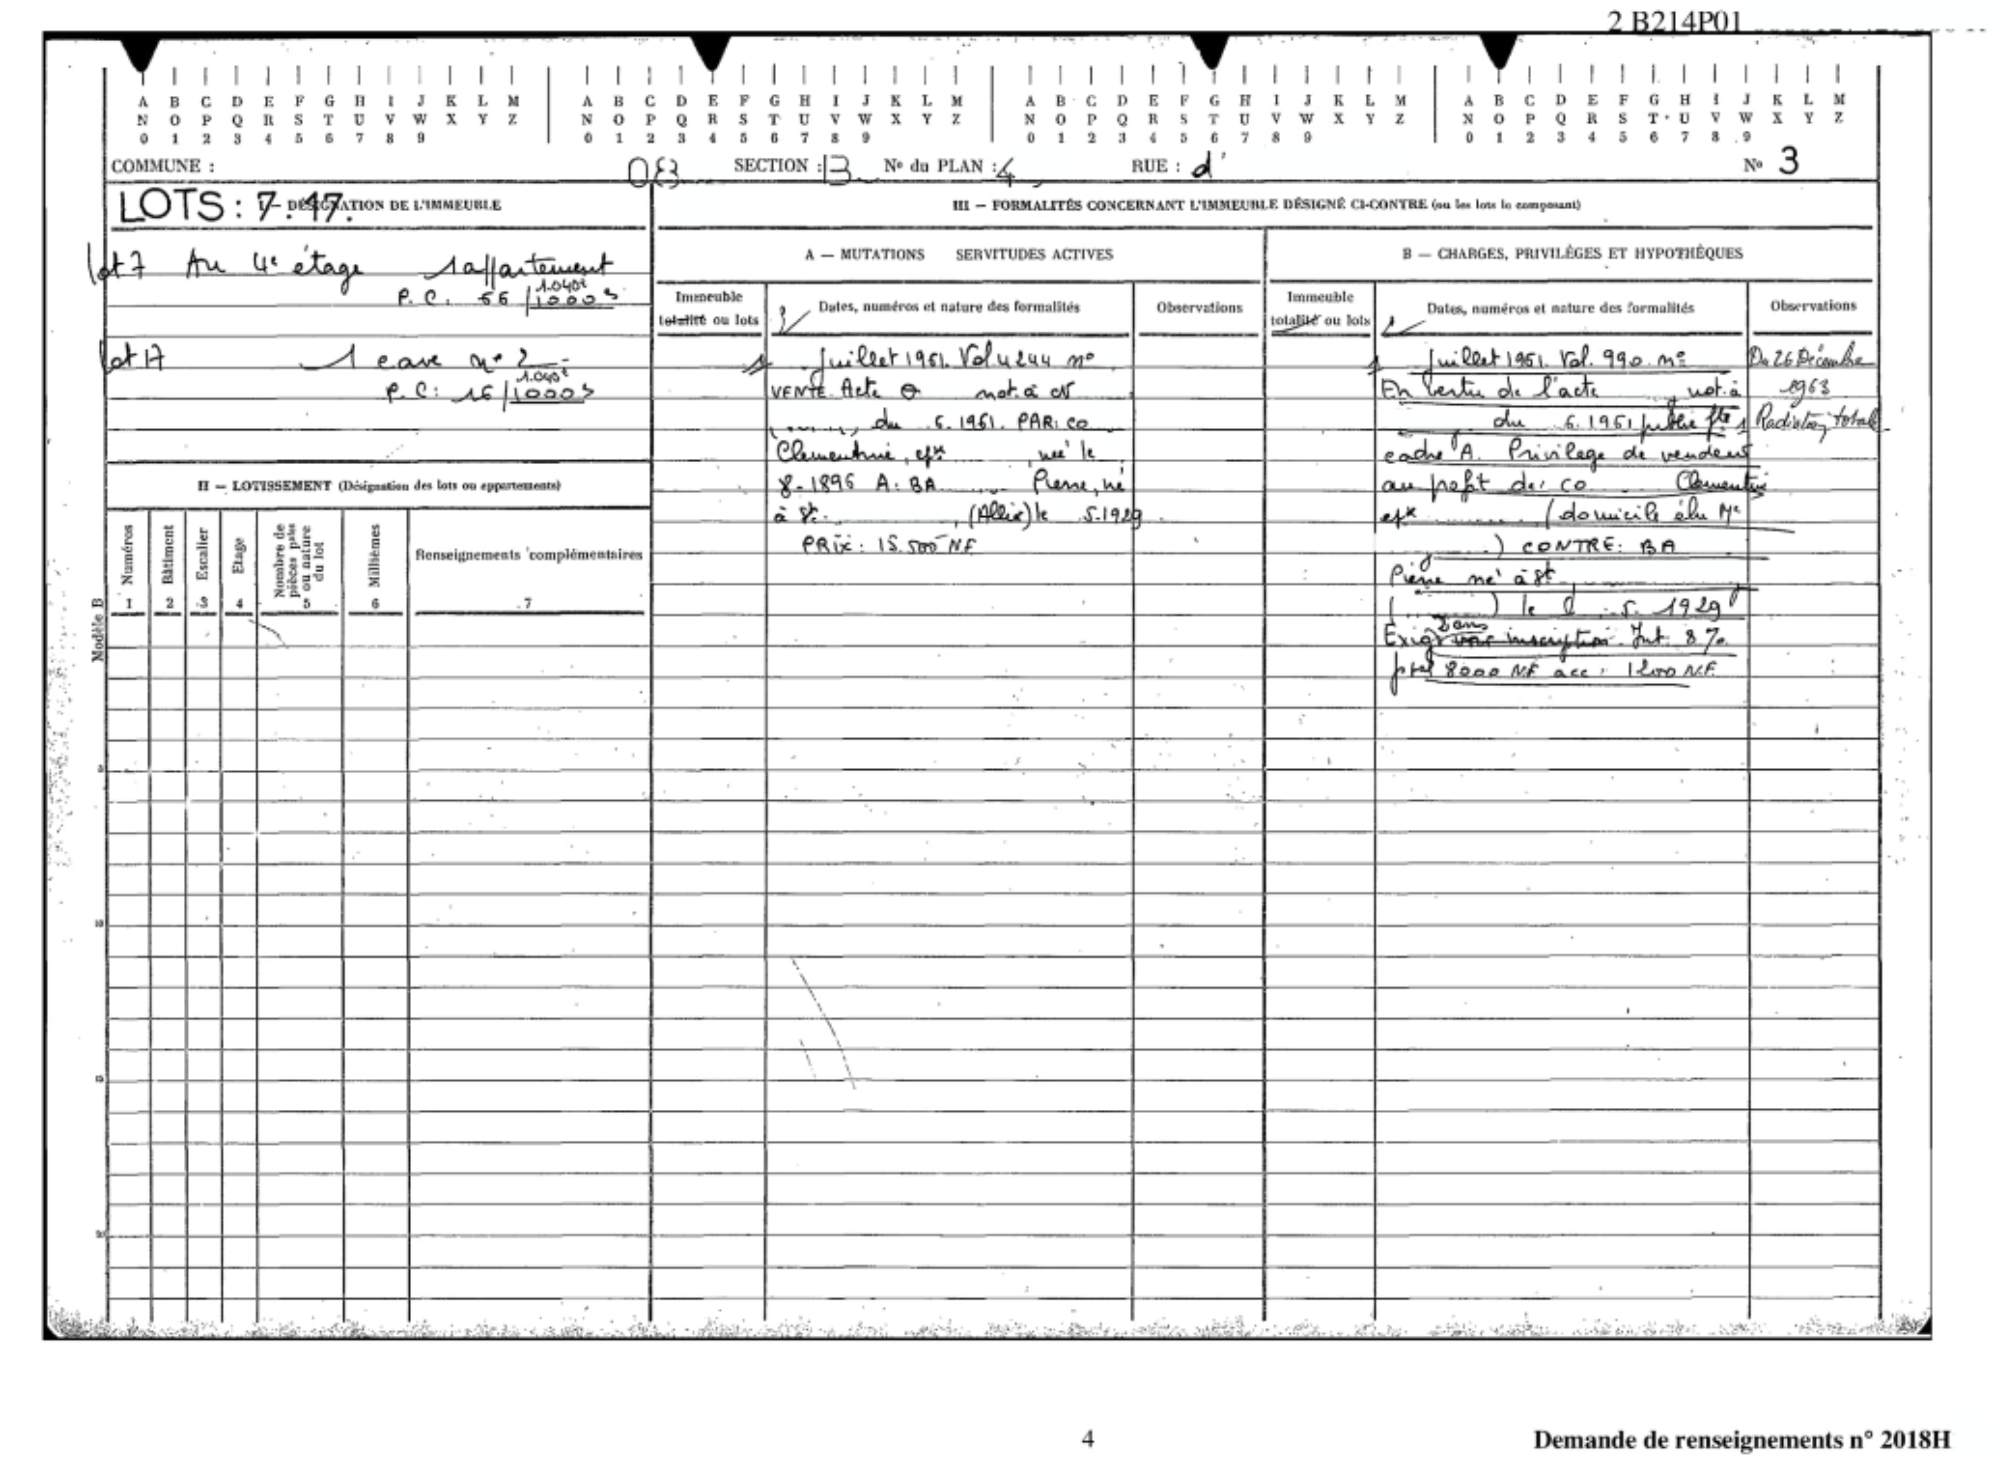 2 B214P01
A B C D E F G H I J K L M A B C D E F G H I J K L M A B C D E F G H I J K L M A B C D E F G H I J K L M
N O P Q R S T U V W X Y Z N O P Q R S T U V W X Y Z N O P Q R S T U V W X Y Z N O P Q R S T U V W X Y Z
0 1 2 3 4 5 6 7 8 9 0 1 2 3 4 5 6 7 8 9 0 1 2 3 4 5 6 7 8 9 0 1 2 3 4 5 6 7 8 9
COMMUNE : SECTION : B N° du PLAN : 4 RUE : d' N° 3
LOTS : 7.17.
I — DÉSIGNATION DE L'IMMEUBLE
lot 7 Au 4e étage 1 appartement
1.040e
P.C. 66/1000s
lot 17 1 cave n° 2
1.040e
P.C: 16/1000s
II — LOTISSEMENT (Désignation des lots ou appartements)
Numéros
Bâtiment
Escalier
Etage
Nombre de
pièces pales
ou nature
du lot
Millièmes
Renseignements complémentaires
1 2 3 4 5 6 7
Modèle B
5
10
15
20
III — FORMALITÉS CONCERNANT L'IMMEUBLE DÉSIGNÉ CI-CONTRE (ou les lots le composant)
A — MUTATIONS SERVITUDES ACTIVES
Immeuble
totalité ou lots
Dates, numéros et nature des formalités
Observations
Juillet 1961. Vol 4244 n°
VENTE. Acte not. à
du 6.1961. PAR: CO
Clementine, epx née le
8-1896 A: BA Pierre, né
à St. (Allier) le 5.1929
PRIX: 15.500 NF
B — CHARGES, PRIVILÈGES ET HYPOTHÈQUES
Immeuble
totalité ou lots
Dates, numéros et nature des formalités
Observations
Juillet 1961. Vol. 990. n°
En vertu de l'acte not. à
du 6.1961 publié fté 1
cadre A. Privilege de vendeur
au profit de: CO Clementine
epx (domicile élu Me
) CONTRE: BA
Pierre né à St
) le 5. 1929
2 ans
Exig inscription. Int. 8%
pal 8000 NF acc: 1200 N.F.
Du 26 Décembre
1963
Radiation totale
4
Demande de renseignements n° 2018H